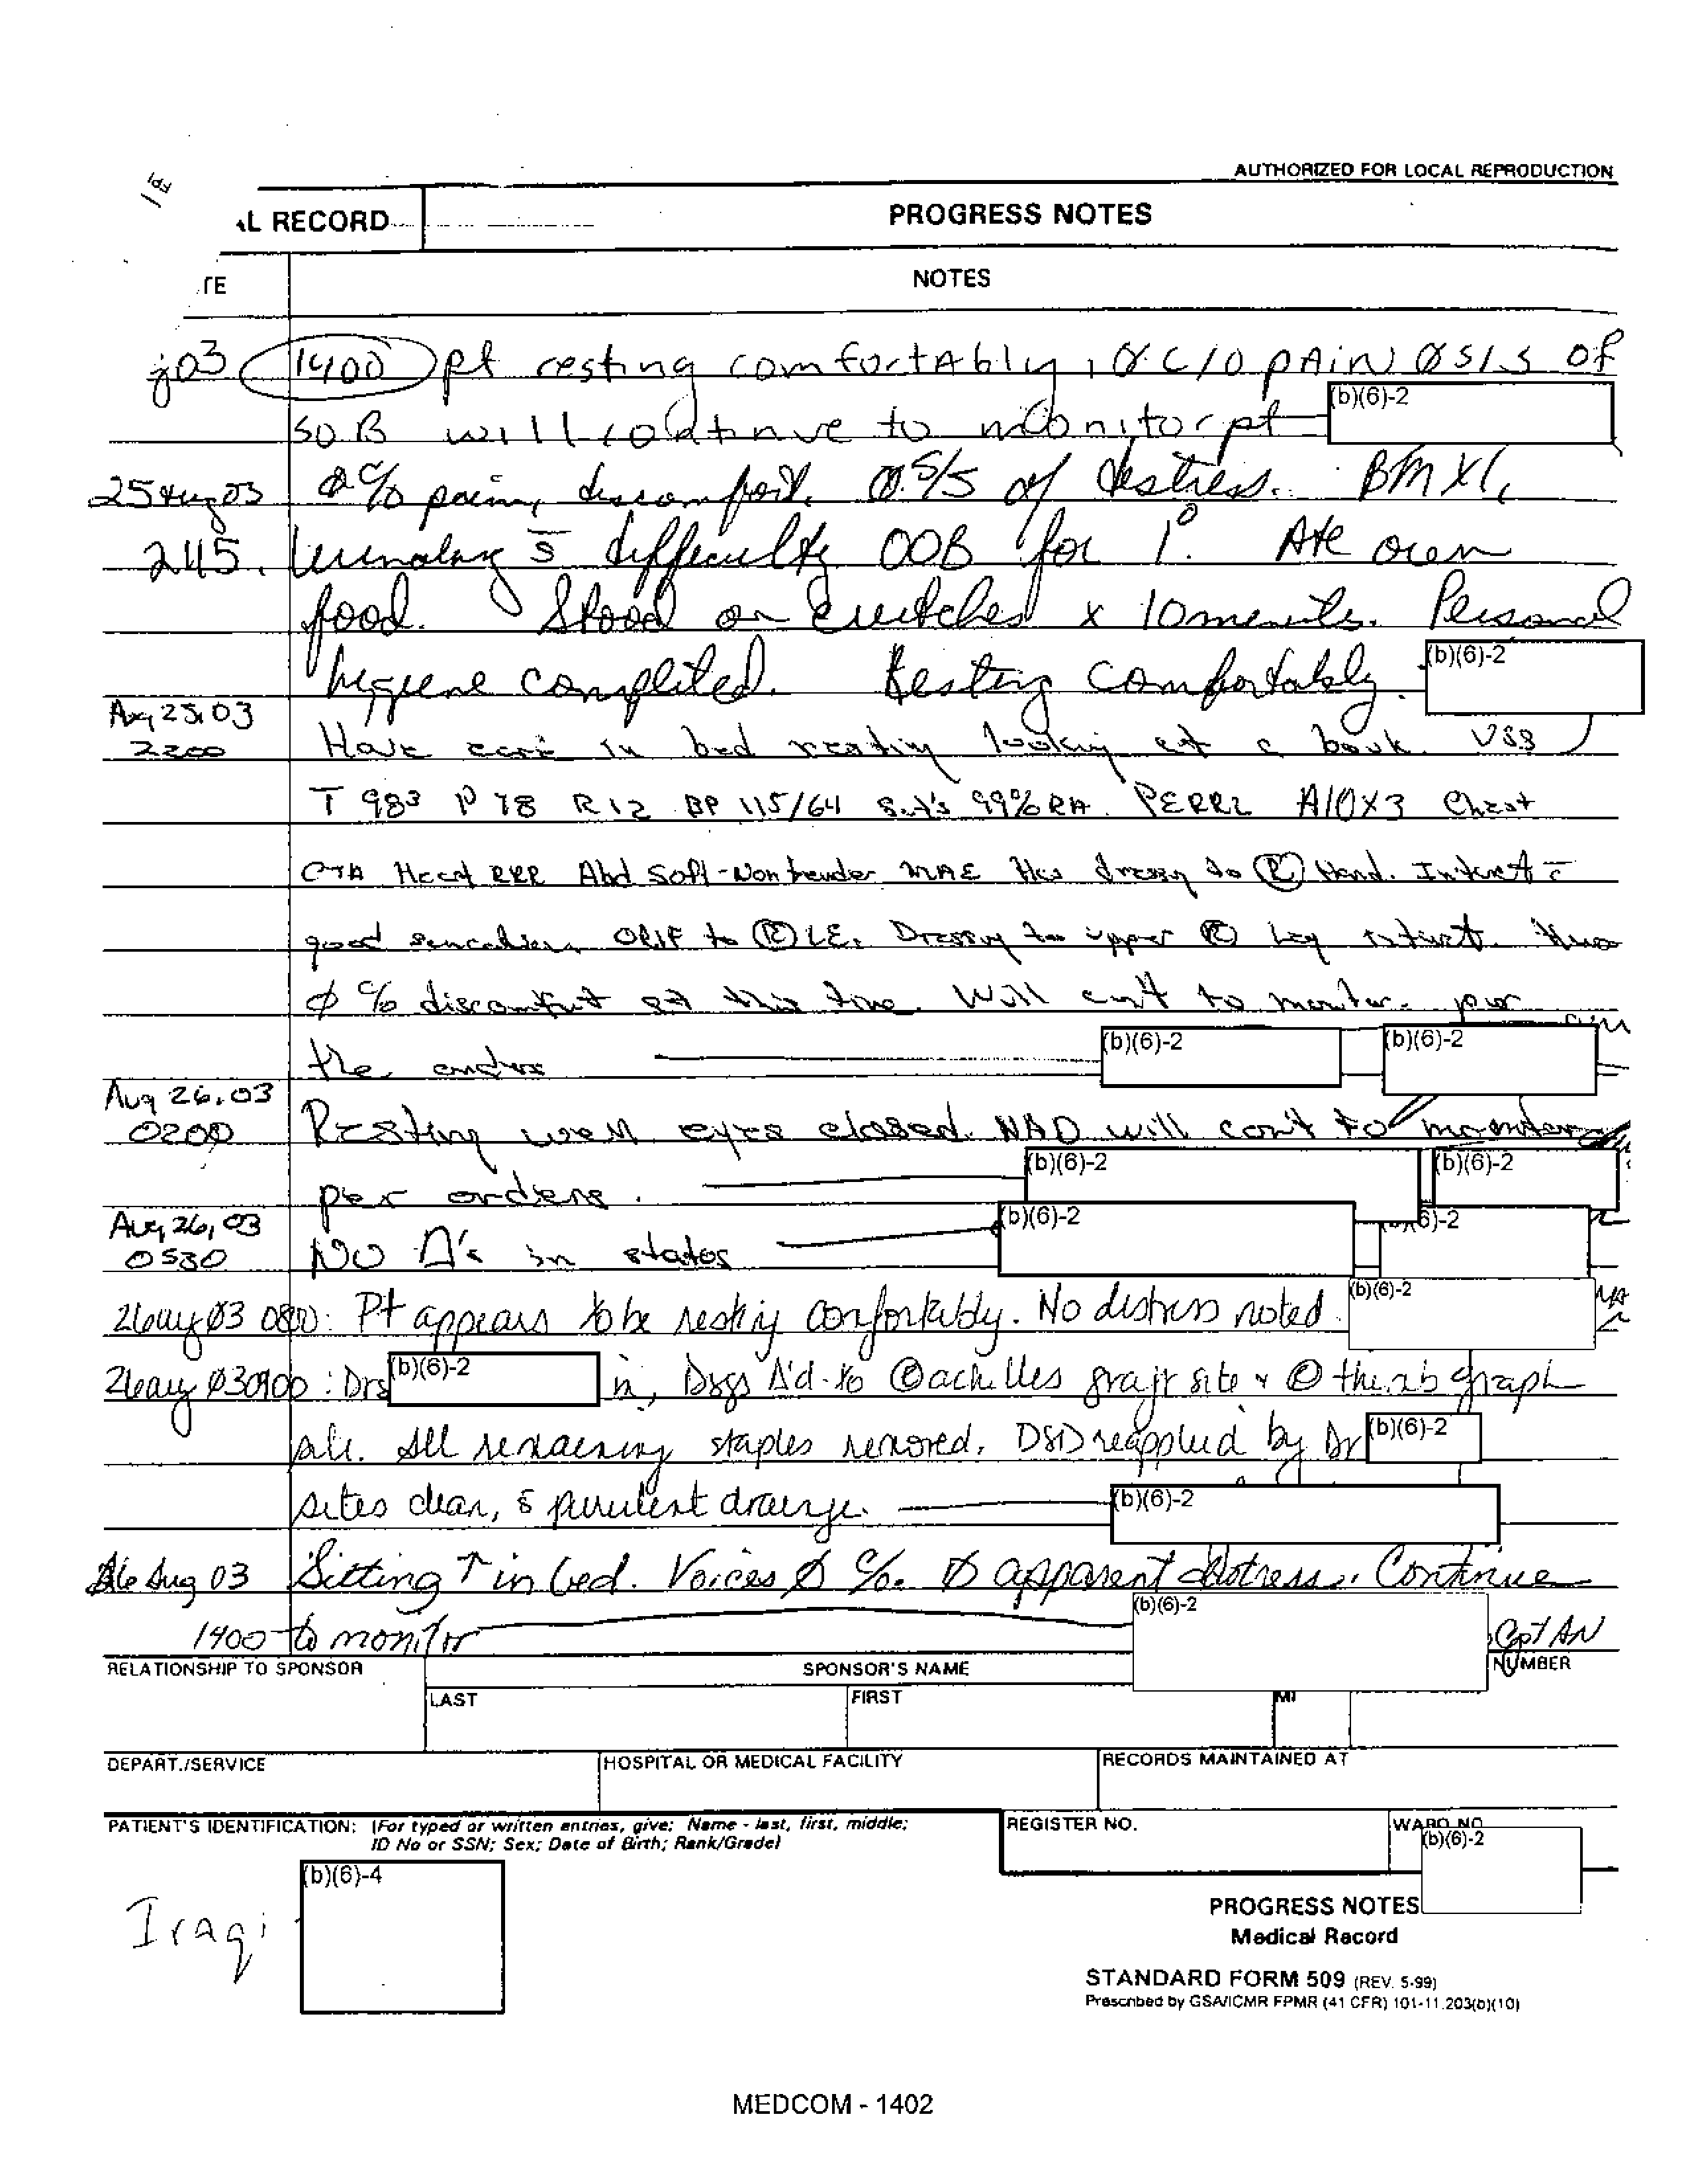 AUTHORIZED FOR LOCAL REPRODUCTION
AL RECORD
PROGRESS NOTES
TE
NOTES
g03 1400 pt resting comfortably, Ø C/O pAiN Ø S/S of
SOB will continue to monitor pt (b)(6)-2
25 Aug 03 Ø c/o pain, discomfort. Ø S/S of distress. BM x1,
2115. Urinating s̄ difficulty OOB for 1°. Ate own
food. Stood on crutches x 10 minutes. Personal
hygiene completed. Resting comfortably. (b)(6)-2
Aug 25, 03
2200 Have in bed resting looking at a book. VSS
T 98³ P 78 R 12 BP 115/64 Sat's 99% RA. PERRL A/OX3 Chest
CTA Heart RRR Abd Soft-Nontender MAE Has dressg to Ⓡ Hand. Intact c̄
good sensation ORIF to Ⓡ LE. Dressing to upper Ⓡ Leg intact. Has
Ø c/o discomfort at this time. Will con't to monitor per
the orders (b)(6)-2 (b)(6)-2
Aug 26, 03
0200 Resting well eyes closed. NAD will con't to monitor
per orders. (b)(6)-2 (b)(6)-2
Aug, 26, 03
0530 NO Δ's in status (b)(6)-2 (b)(6)-2
26aug Ø3 0800: Pt appears to be resting comfortably. No distress noted. (b)(6)-2
26aug Ø3 0900: Drs (b)(6)-2 in, Dsgs Δ'd to achilles graft site & graph
site. All remaining staples removed. DSD reapplied by Dr (b)(6)-2
sites clean, s̄ purulent drainge. (b)(6)-2
26 Aug 03 Sitting ↑ in bed. Voices Ø c/o. Ø apparent distress. Continue
1400 to monitor (b)(6)-2 Cpt AN
RELATIONSHIP TO SPONSOR
SPONSOR'S NAME
NUMBER
LAST
FIRST
MI
DEPART./SERVICE
HOSPITAL OR MEDICAL FACILITY
RECORDS MAINTAINED AT
PATIENT'S IDENTIFICATION: (For typed or written entries, give: Name - last, first, middle;
ID No or SSN; Sex; Date of Birth; Rank/Grade)
REGISTER NO.
WARD NO.
(b)(6)-2
(b)(6)-4
Iraqi
PROGRESS NOTES
Medical Record
STANDARD FORM 509 (REV. 5-99)
Prescribed by GSA/ICMR FPMR (41 CFR) 101-11.203(b)(10)
MEDCOM - 1402